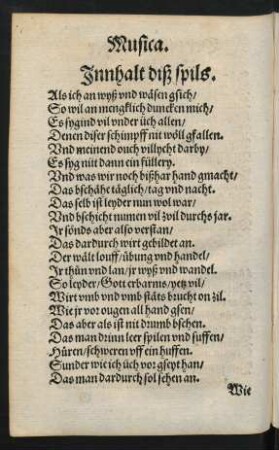 Musica.
Innhalt diß spils.
Als ich an wyß vnd wäsen gsich/
So wil an mengklich duncken mich/
Es sygind vil vnder üch allen/
Denen diser schimpff nit wöll gfallen.
Vnd meinend ouch villycht darby/
Es syg nüt dann ein füllery.
Vnd was wir noch bißhar hand gmacht/
Das bschähe täglich/ tag vnd nacht.
Das selb ist leyder nun wol war/
Vnd bschicht numen vil zvil durchs jar.
Ir sönds aber also verstan/
Das dardurch wirt gebildet an.
Der wält louff/ übung vnd handel/
Ir thün vnd lan/ jr wyß vnd wandel.
So leyder/ Gott erbarms/ yetz vil/
Wirt vmb vnd vmb stäts brucht on zil.
Wie jr vor ougen all hand gsen/
Das aber als ist nit drumb bschen.
Das man drinn leer spilen vnd suffen/
Hüren/ schweren vff ein huffen.
Sunder wie ich üch vor gseyt han/
Das man dardurch sol sehen an.
Wie